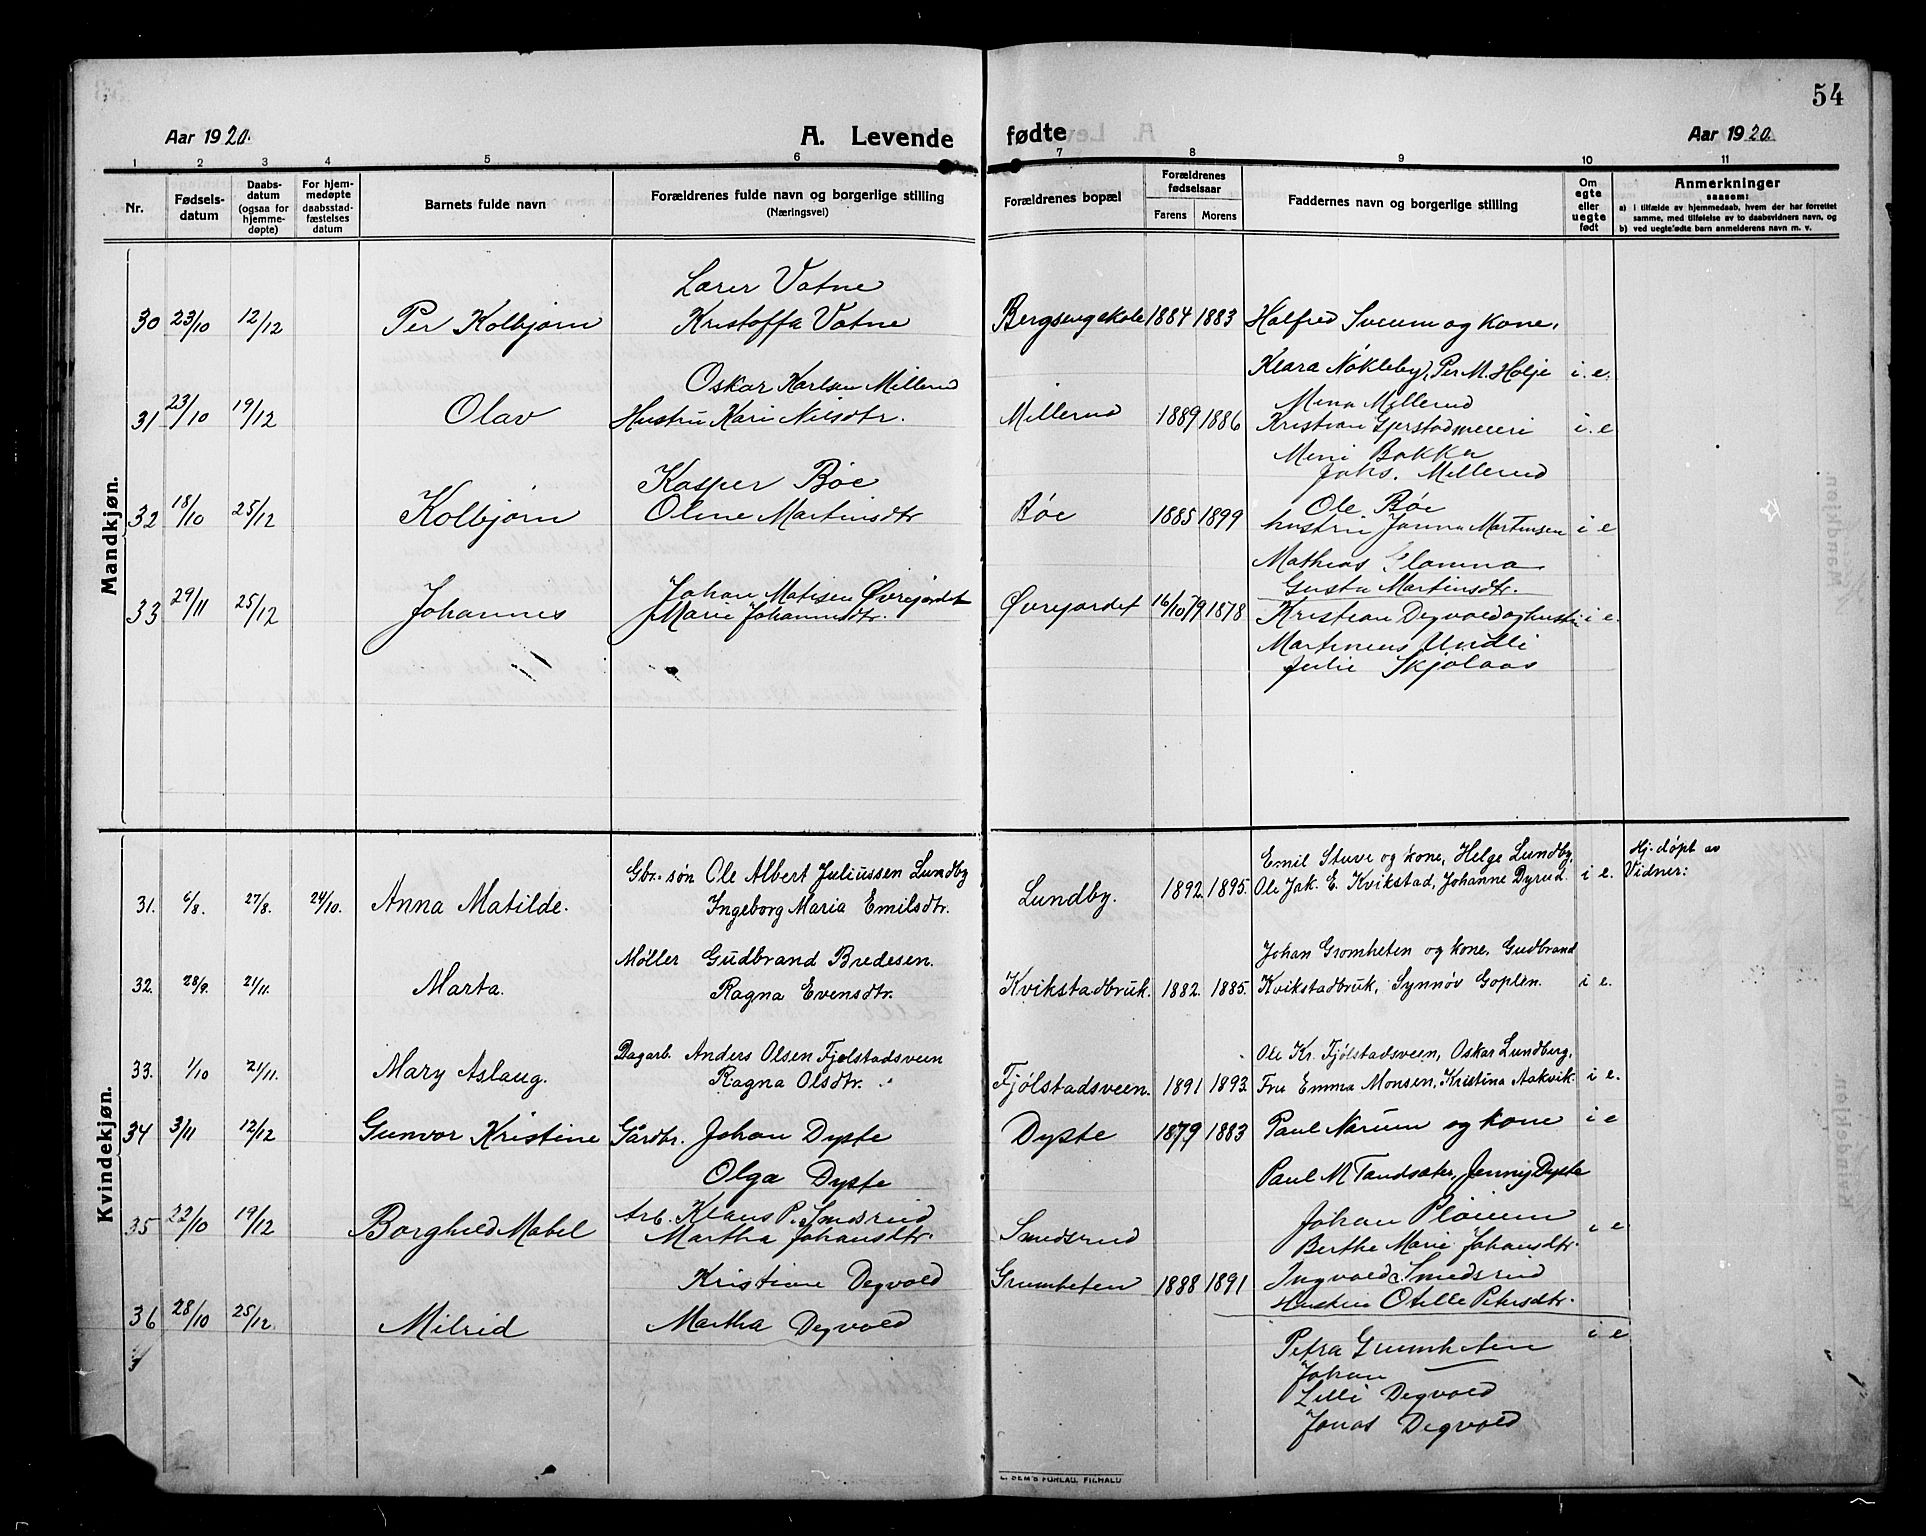 54
Aar 1920.
A. Levende fødte
Aar 1920
1 2 3 4 5 6 7 8 9 10 11
Nr.
Fødsels-
datum
Daabs-
datum
(ogsaa for
hjemme-
døpte)
For hjem-
medøpte
daabsstad-
fæstelses
datum
Barnets fulde navn
Forældrenes fulde navn og borgerlige stilling
(Næringsvei)
Forældrenes bopæl
Forældrenes
fødselsaar
Farens Morens
Faddernes navn og borgerlige stilling
Om
egte
eller
uegte
født
Anmerkninger
saasom:
a) i tilfælde av hjemmedaab, hvem der har forrettet
samme, med tilføielse av to daabsvidners navn, og
b) ved uegtefødte barn anmelderens navn m. v.
Mandkjøn.
Lærer Vatne
30 23/10 12/12 Per Kolbjørn Kristoffa Vatne Bergsengskole 1884 1883 Halfred Sveum og Kone,
Klara Nøkleby, Per M. Holje i. e.
Oskar Karlsen Millerud
Mina Millerud
31 23/10 19/12 Olav Hustru Kari Nilsdtr. Millerud 1889 1886 Kristian Gjerstadmeieri i. e
Meni Bakka
Johs. Millerud
Kasper Bøe
Ole Bøe
32 18/10 25/12 Kolbjørn Oline Martinsdtr Bøe 1885 1899 hustru Janna Martinsen i e
Mathias Glomma
Gusta Martinsdtr.
Johan Matisen Øvrejordet
33 29/11 25/12 Johannes Marie Johannesdtr. Øvrejordet 16/10 79 1878 Kristian Degvold og hustru i e.
Martineus Undli
Julie Skjølaas
Kvindekjøn.
Gbr.søn Ole Albert Juliussen Lundby
Emil Stuve og kone, Helge Lundby,
Hj. døpt av
31. 6/8. 27/8. 24/10. Anna Matilde. Ingeborg Maria Emilsdtr. Lundby. 1892. 1895. Ole Jak. E. Kvikstad, Johanne Dyrud. i e. Vidner:
Møller Gudbrand Bredesen.
Johan Gromheten og kone, Gudbrand
32. 28/9. 21/11. Marta. Ragna Evensdtr. Kvikstadbruk. 1882. 1885. Kvikstadbruk, Synnøv Goplen. i e.
Dagarb. Anders Olsen Fjølstadsveen
Ole Kr. Fjølstadsveen, Oskar Lundberg,
33. 1/10 21/11. Mary Aslaug. Ragna Olsdtr. Fjølstadsveen. 1891 1893. Fru Emma Monsen, Kristina Aakvik. i e.
34 3/11 12/12 Gunvor Kristine Gårdbr. Johan Dyste Dyste 1879 1883 Paul Narum og kone i e
Olga Dyste
Paul M Tandsæter, Jenny Dyste
Arb. Klaus P. Smedsrud
Johan Pløium
35 22/10 19/12 Borghild Mabel Martha Johansdtr. Smedsrud Berthe Marie Johansdtr. i e
Kristian Degvold Grumheten 1888 1891 Ingvold Smedsrud
Hustru Otelle Petersdtr.
36 28/10 25/12 Milrid Martha Degvold i e
Petra Grumheten
Johan
Lilli Degvold
Jonas Degvold